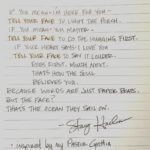 IF YOU MEAN I'M HERE FOR YOU—
TELL YOUR FACE TO LIGHT THE PORCH.
IF YOU MEAN YOU MATTER—
TELL YOUR FACE TO DO THE HUGGING FIRST.
IF YOUR HEART SAYS: I LOVE YOU
TELL YOUR FACE TO SAY IT LOUDER.
EYES FIRST. MOUTH NEXT.
THAT'S HOW THE SOUL
BELIEVES YOU.
BECAUSE WORDS ARE JUST PAPER BOATS.
BUT THE FACE?
THAT'S THE OCEAN THEY SAIL ON.
inspired by my